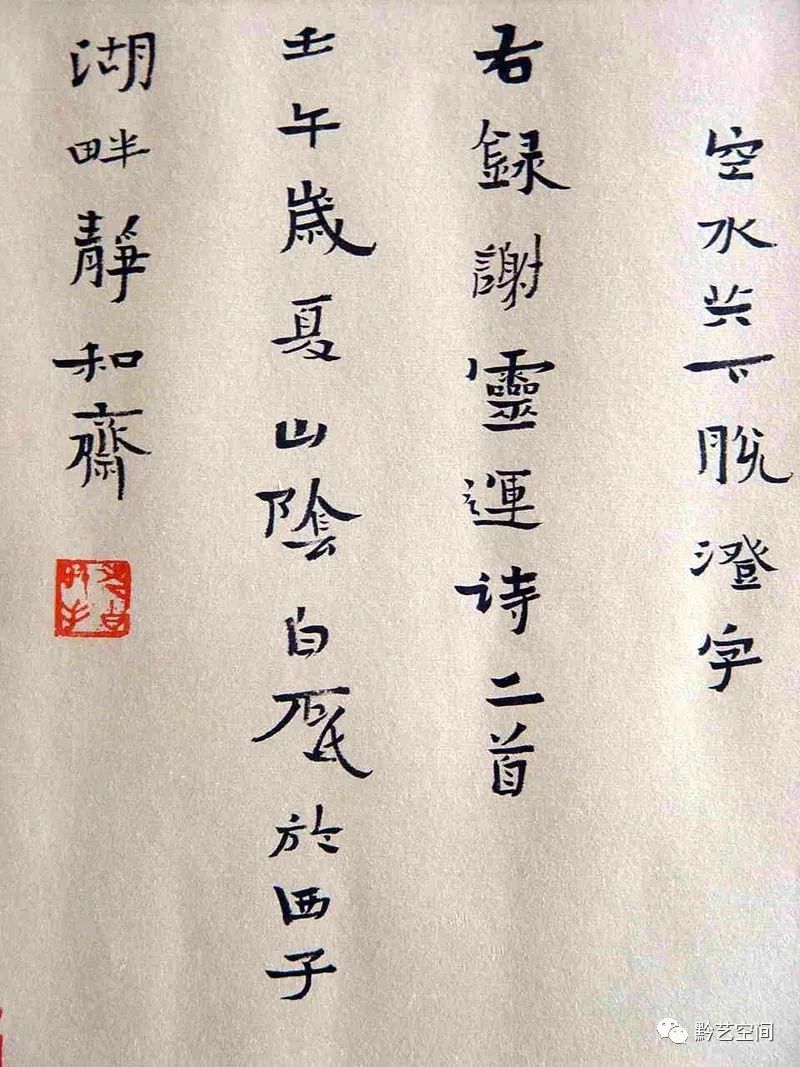 空水共下脱澄字
右録謝靈運诗二首
壬午歲夏山陰白砥於西子
湖畔靜和齋
黔艺空间